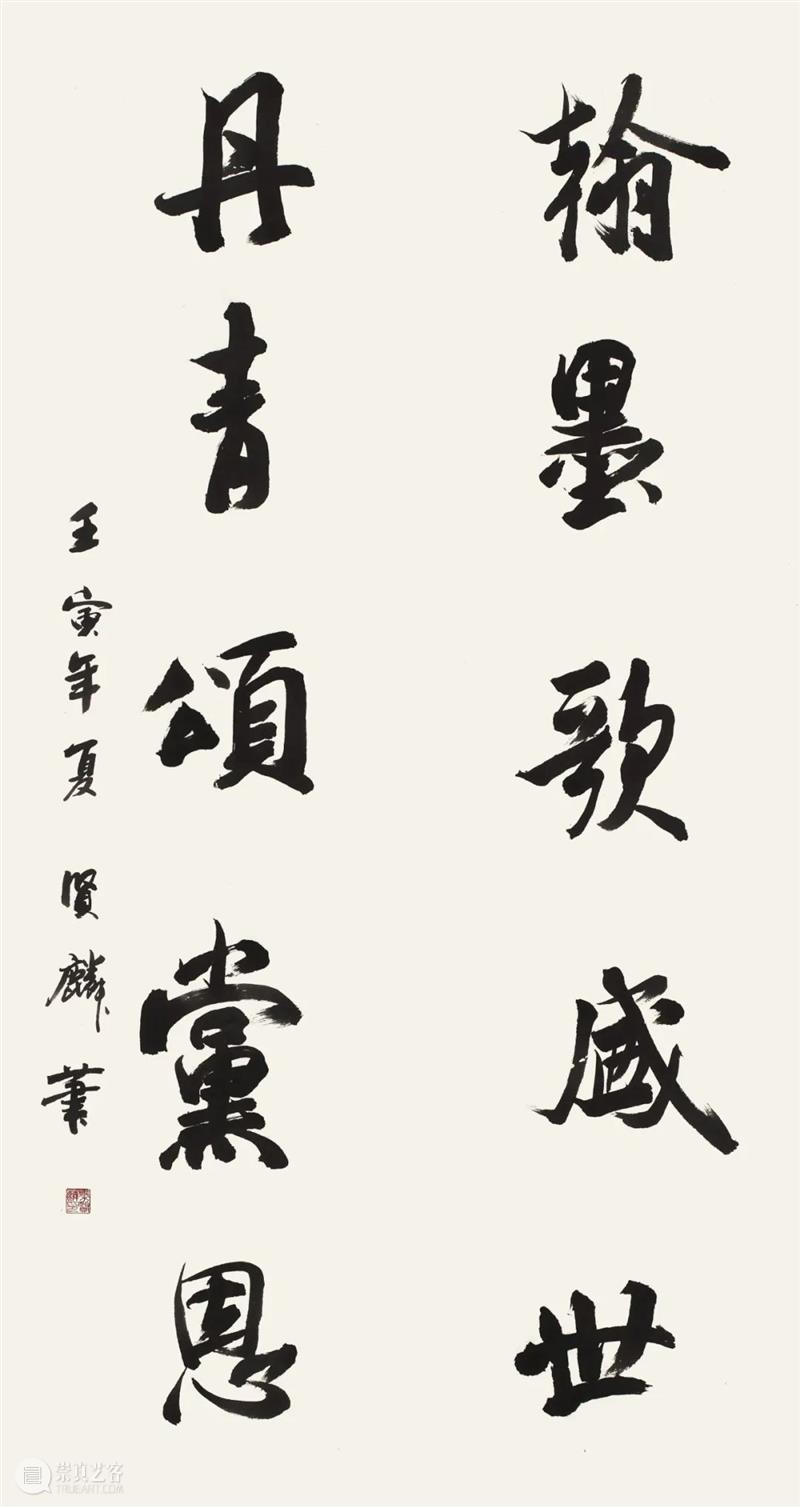 翰墨歌盛世
丹青頌黨恩
壬寅年夏 贤麟筆
崇真艺客
TRUEART.COM